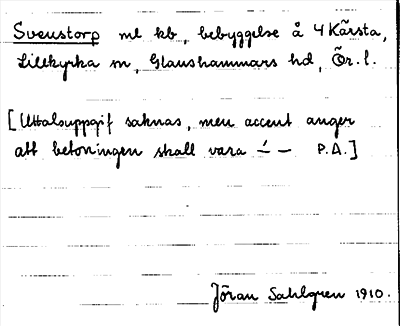 Svenstorp ml kb, bebyggelse å 4 Kårsta,
Lillkyrka sn, Glanshammars hd, Ör. l.
[Uttalsuppgif saknas, men accent anger
att betoningen skall vara –́ – P.A.]
Jöran Sahlgren 1910.